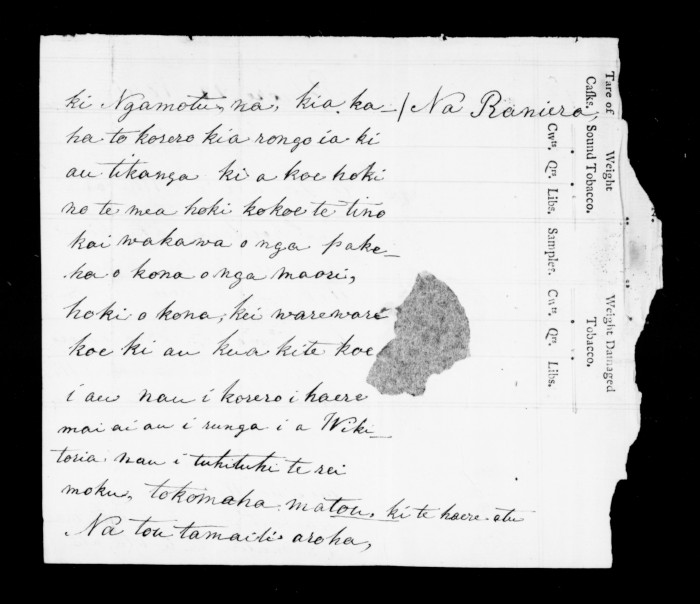 ki Ngamotu, na, kia ka- / Na Raniera,
ha to korero kia rongo ia ki
au tikanga ki a koe hoki
no te mea hoki ko koe te tino
kai wakawa o nga pake-
ha o kona o nga maori,
hoki o kona, kei wareware
koe ki au kua kite koe
i au nau i korero i haere
mai ai au i runga i a Wiki-
toria nau i tuhituhi te rei
moku, tokomaha matou, ki te haere atu
Na tou tamaiti aroha,
Tare of Casks.
Weight Sound Tobacco.
Cwts. Qrs. Libs.
Samples.
Weight Damaged Tobacco.
Cwts. Qrs. Libs.